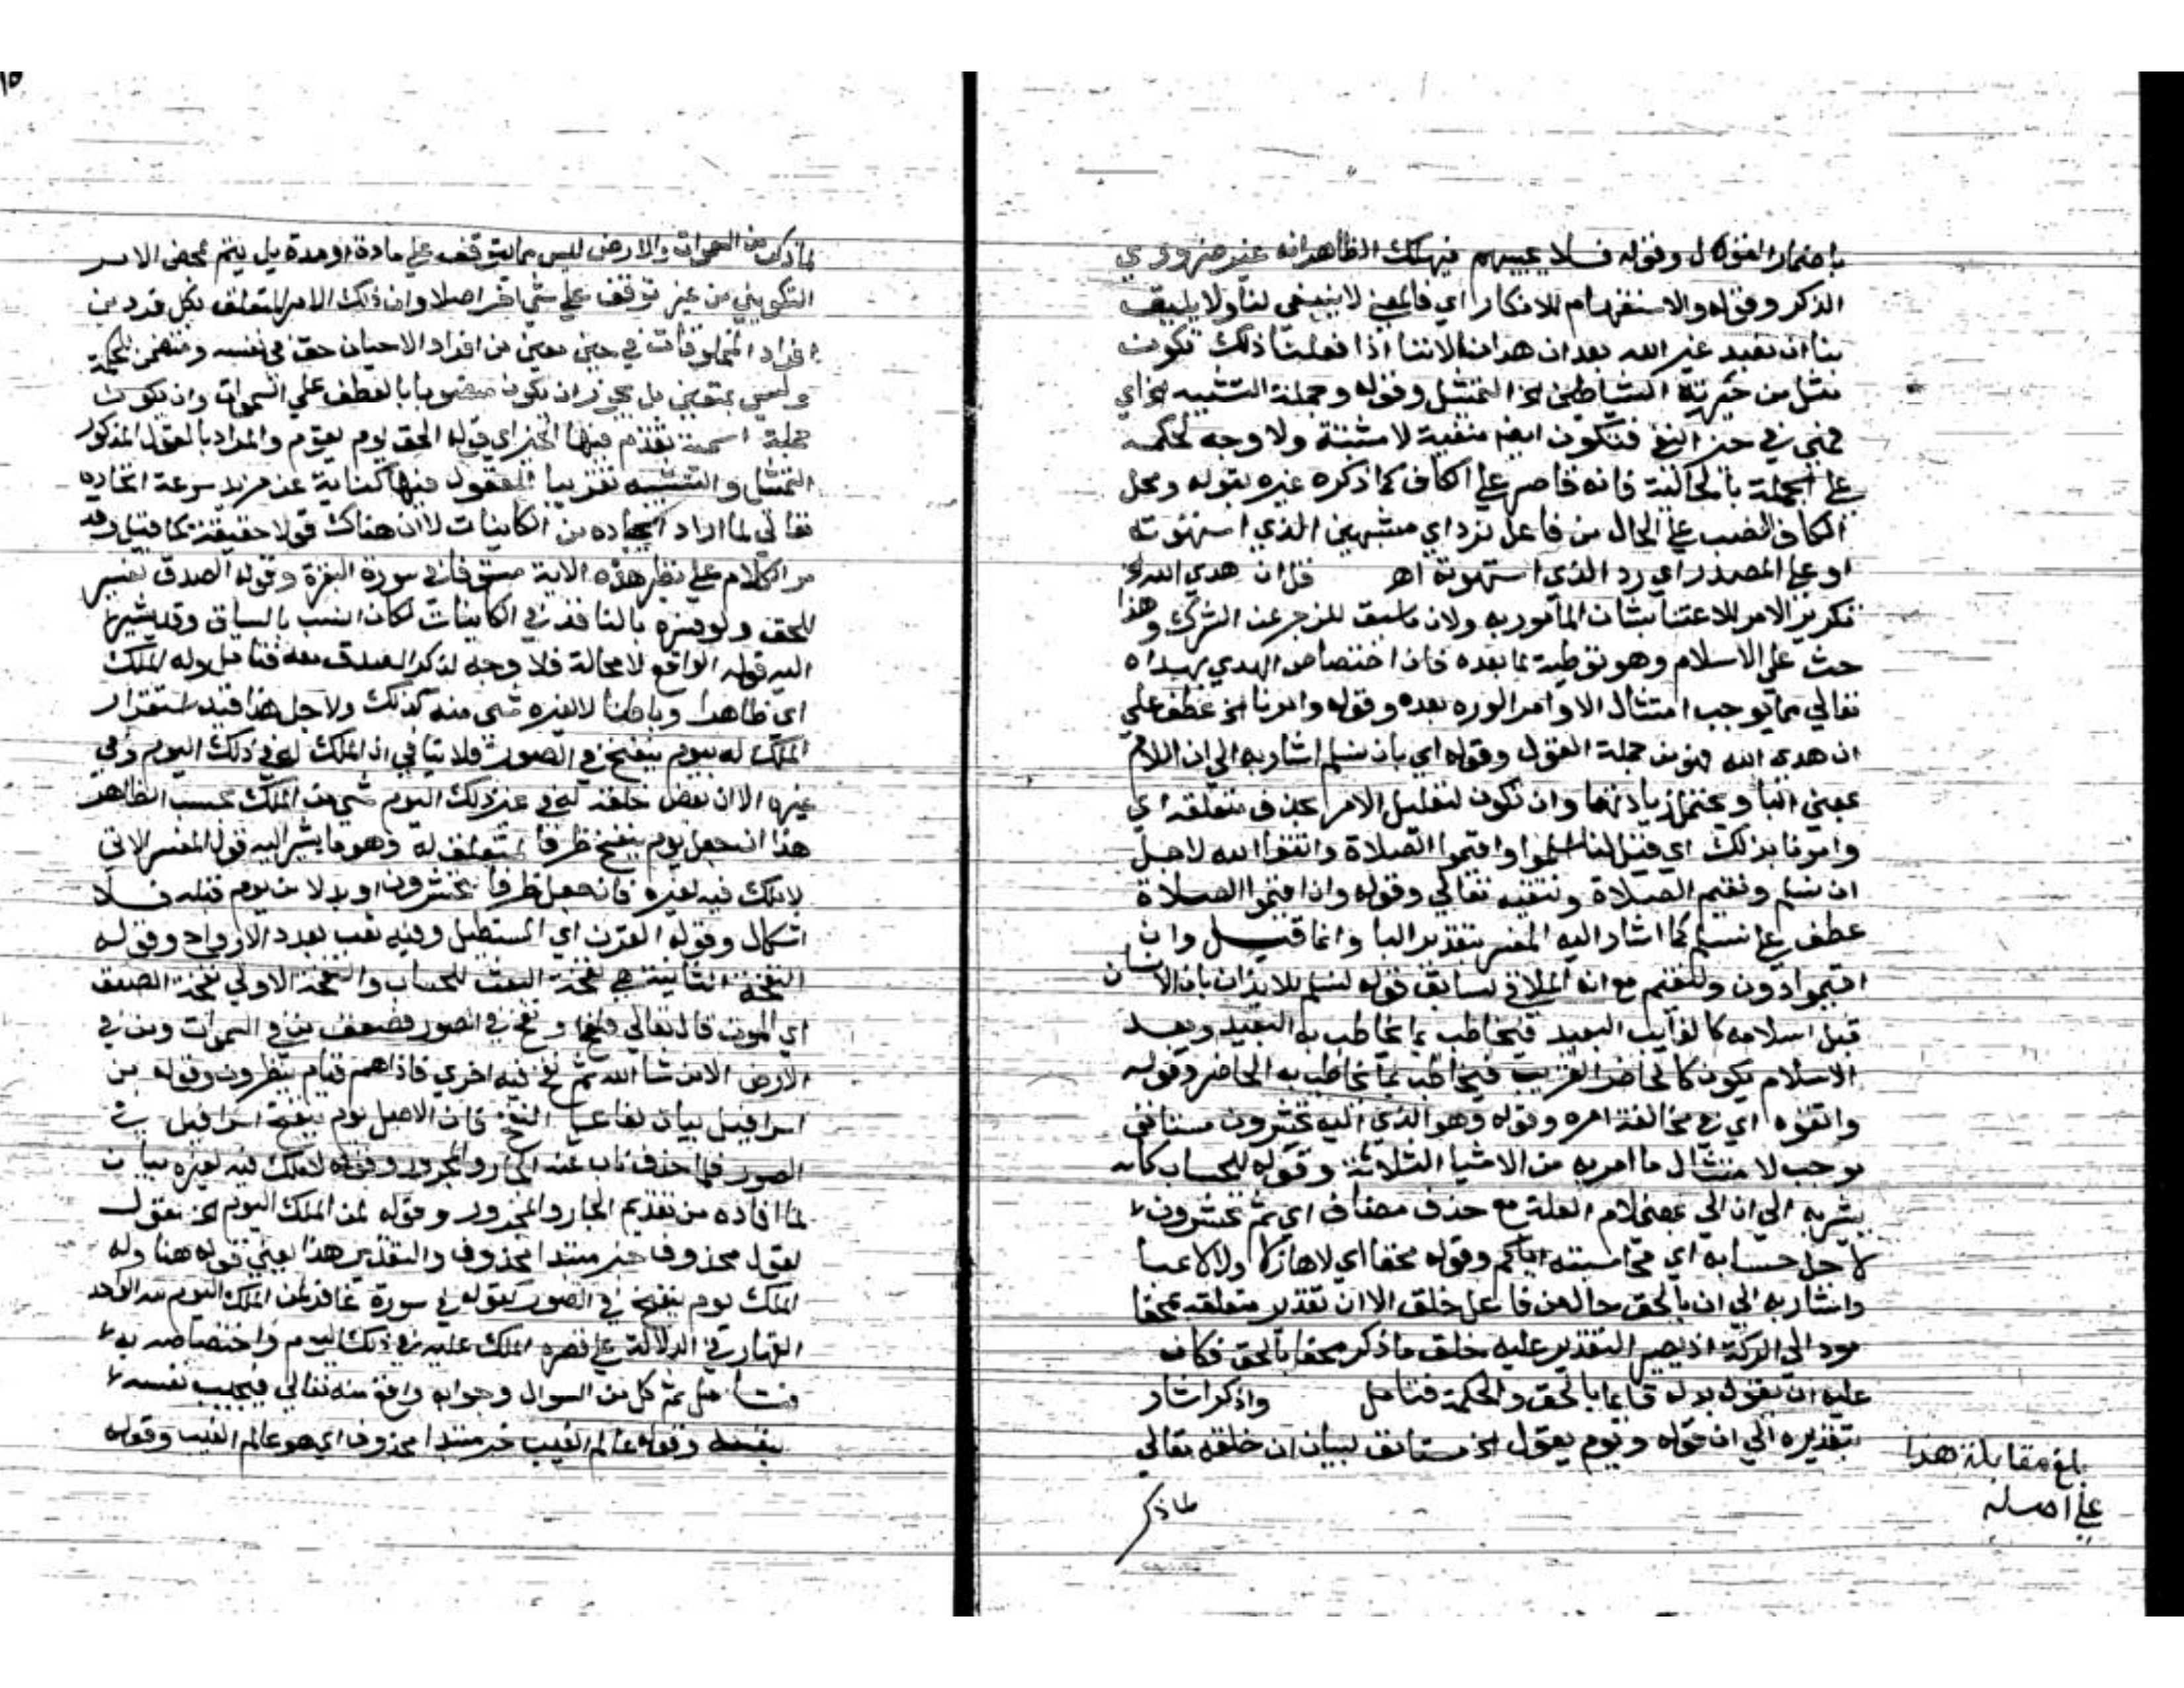 باضمار القول وقوله فلا يجيبهم فيهلك الظاهر انه غير ضروري
الذكر وقوله والاستفهام للانكار اي فالمعنى لا ينبغي لنا ولا يليق
بنا ان نعبد غير الله بعد ان هدانا لاننا اذا فعلنا ذلك نكون
مثل من حيرته الشياطين الخ التمثيل وقوله وجملة التشبيه الخ اي
فهي في حيز النفي فتكون ايضا منفية لا مثبتة ولا وجه لحكمه
على الجملة بالحالية فانه قاصر على الكاف كما ذكره غيره بقوله ومحل
الكاف النصب على الحال من فاعل نرد اي مشبهين الذي استهوته
او على المصدر اي رد الذي استهوته اهـ قل ان هدي الله الخ
تكرير الامر للاعتنا بشان المأمور به ولان ما سبق للزجر عن الشرك وهذا
حث على الاسلام وهو توطية لما بعده فان اختصاص الهدي بهداه
تعالي مما يوجب امتثال الاوامر الوره بعده وقوله وامرنا الخ عطف على
ان هدى الله فهو من جملة القول وقوله اي بان نسلم اشار به الى ان اللام
بمعنى البا ويحتمل زيادتها وان تكون لتعليل الامر بحذف متعلقه اي
وامرنا بذلك اي قيل لنا اسلموا واقيموا الصلاة واتقوا الله لاجل
ان نسلم ونقيم الصلاة ونتقيه تعالي وقوله وان اقيموا الصلاة
عطف على نسلم كما اشار اليه المفسر بتقدير البا وانما قيل وان
اقيموا دون ولنقيم مع انه الملاقي لسابق قوله لنسلم للايذان بان الانسان
قبل اسلامه كالغايب البعيد فيخاطب بما يخاطب به البعيد وبعد
الاسلام يكون كالحاضر القريب فيخاطب بما يخاطب به الحاضر وقوله
واتقوه اي في مخالفة امره وقوله وهو الذي اليه تحشرون مستانف
موجب لامتثال ما امر به من الاشيا الثلاثة وقوله للحساب كانه
يشير به الي ان الي بمعنى لام العلة مع حذف مضاف اي ثم تحشرون
لاجل حسابه اي محاسبته اياكم وقوله محقا اي لا هازلا ولا لاعبا
واشار به الي ان بالحق حال من فاعل خلق الا ان تقدير متعلقه محقا
مود الى الركة اذ يصير التقدير عليه خلق ما ذكر محقا بالحق فكان
عليه ان يقول بدله قايما بالحق والحكمة فتامل واذكر اشار
بتقديره الي ان قوله ويوم يقول الخ مستانف لبيان ان خلقه تعالي
بلغ مقابلة هذا
على اصله
لما ذكر
لما ذكر من السموات والارض ليس مما يتوقف على مادة او مدة بل يتم بمحض الامر
التكويني من غير توقف على شي اخر اصلا وان ذلك الامر المتعلق بكل فرد من
افراد المخلوقات في حين معين من افراد الاحيان حق في نفسه ومتضمن للحكمة
وليس بمتعين بل يجوز ان يكون منصوبا بالعطف علي السموات وان يكون
جملة اسمية تقدم فيها الخبر اي قوله الحق يوم يقوم والمراد بالقول المذكور
التمثيل والتشبيه تقريبا للعقول فيها كناية عن مزيد سرعة اتخاده
تعالي لما اراد ايجاده من الكاينات لا ان هناك قولا حقيقة كما قيل وقد
مر الكلام على نظير هذه الاية مستوفا في سورة البقرة وقوله الصدق تفسير
للحق ولو فسره بالنافذ في الكاينات لكان انسب بالسياق وقد يشير
اليه قوله الواقع لا محالة فلا وجه لذكر الصدق معه فتامل وله الملك
اي ظاهرا وباطنا لا لغيره شي منه كذلك ولاجل هذا قيد استقرار
الملك له بيوم ينفخ في الصور فلا ينافي ان الملك له في ذلك اليوم وفي
غيره الا ان بعض خلقه له في غير ذلك اليوم شي من الملك بحسب الظاهر
هذا ان جعل يوم ينفخ ظرفا لمتعلق له وهو ما يشير اليه قول المفسر الاتي
لا ملك فيه لغيره فان جعل ظرفا لتحشرون او بدلا من يوم قبله فلا
اشكال وقوله القرن اي المستطيل وفيه ثقب بعدد الارواح وقوله
النفخة الثانية هي نفخة البعث للحساب والنفخة الاولي نفخة الصعق
اي الموت قال تعالي فيهما ونفخ في الصور فصعق من في السموات ومن في
الارض الا من شا الله ثم نفخ فيه اخري فاذا هم قيام ينظرون وقوله من
اسرافيل بيان لفاعل النفخ فان الاصل يوم ينفخ اسرافيل في
الصور فلما حذف ناب عنه الجار والمجرور وقوله لا ملك فيه لغيره بيان
لما افاده من تقديم الجار والمجرور وقوله لمن الملك اليوم الخ بقول
يقول محذوف خبر مبتدا محذوف والتقدير هذا يعني قوله هنا وله
الملك يوم ينفخ في الصور كقوله في سورة غافر لمن الملك اليوم لله الواحد
القهار في الدلالة على قصر الملك عليه في ذلك اليوم واختصاصه به
فتامل ثم كل من السوال وجوابه واقع منه تعالي فيجيب نفسه
بنفسه وقوله عالم الغيب خبر مبتدا محذوف اي هو عالم الغيب وقوله